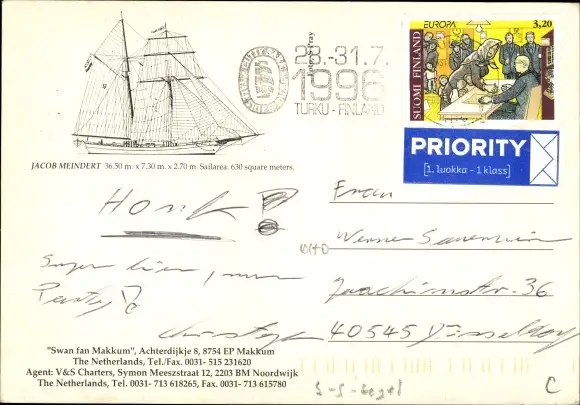 EUROPA 3,20
SUOMI FINLAND
28.-31.7.
1996
TURKU - FINLAND
PRIORITY
[1. luokka - 1 klass]
JACOB MEINDERT 36.50 m. x 7.30 m. x 2.70 m. Sailarea: 630 square meters.
Honk!
Frau
Werner
Joachimstr. 36
Party
40545 Düsseldorf
"Swan fan Makkum", Achterdijkje 8, 8754 EP Makkum
The Netherlands, Tel./Fax. 0031- 515 231620
Agent: V&S Charters, Symon Meeszstraat 12, 2203 BM Noordwijk
The Netherlands, Tel. 0031- 713 618265, Fax. 0031- 713 615780
S-S-Segel
C